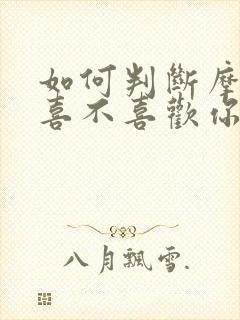 如何判斷摩
喜不喜歡你
八月飄雪.